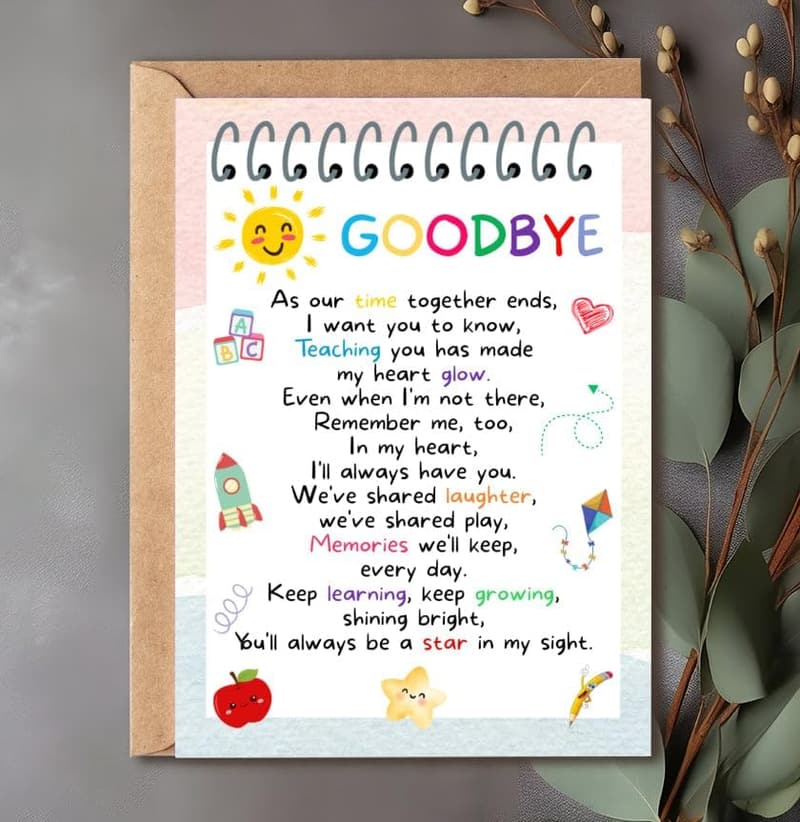 GOODBYE
As our time together ends,
I want you to know,
Teaching you has made
my heart glow.
Even when I'm not there,
Remember me, too,
In my heart,
I'll always have you.
We've shared laughter,
we've shared play,
Memories we'll keep,
every day.
Keep learning, keep growing,
shining bright,
You'll always be a star in my sight.
A
B C